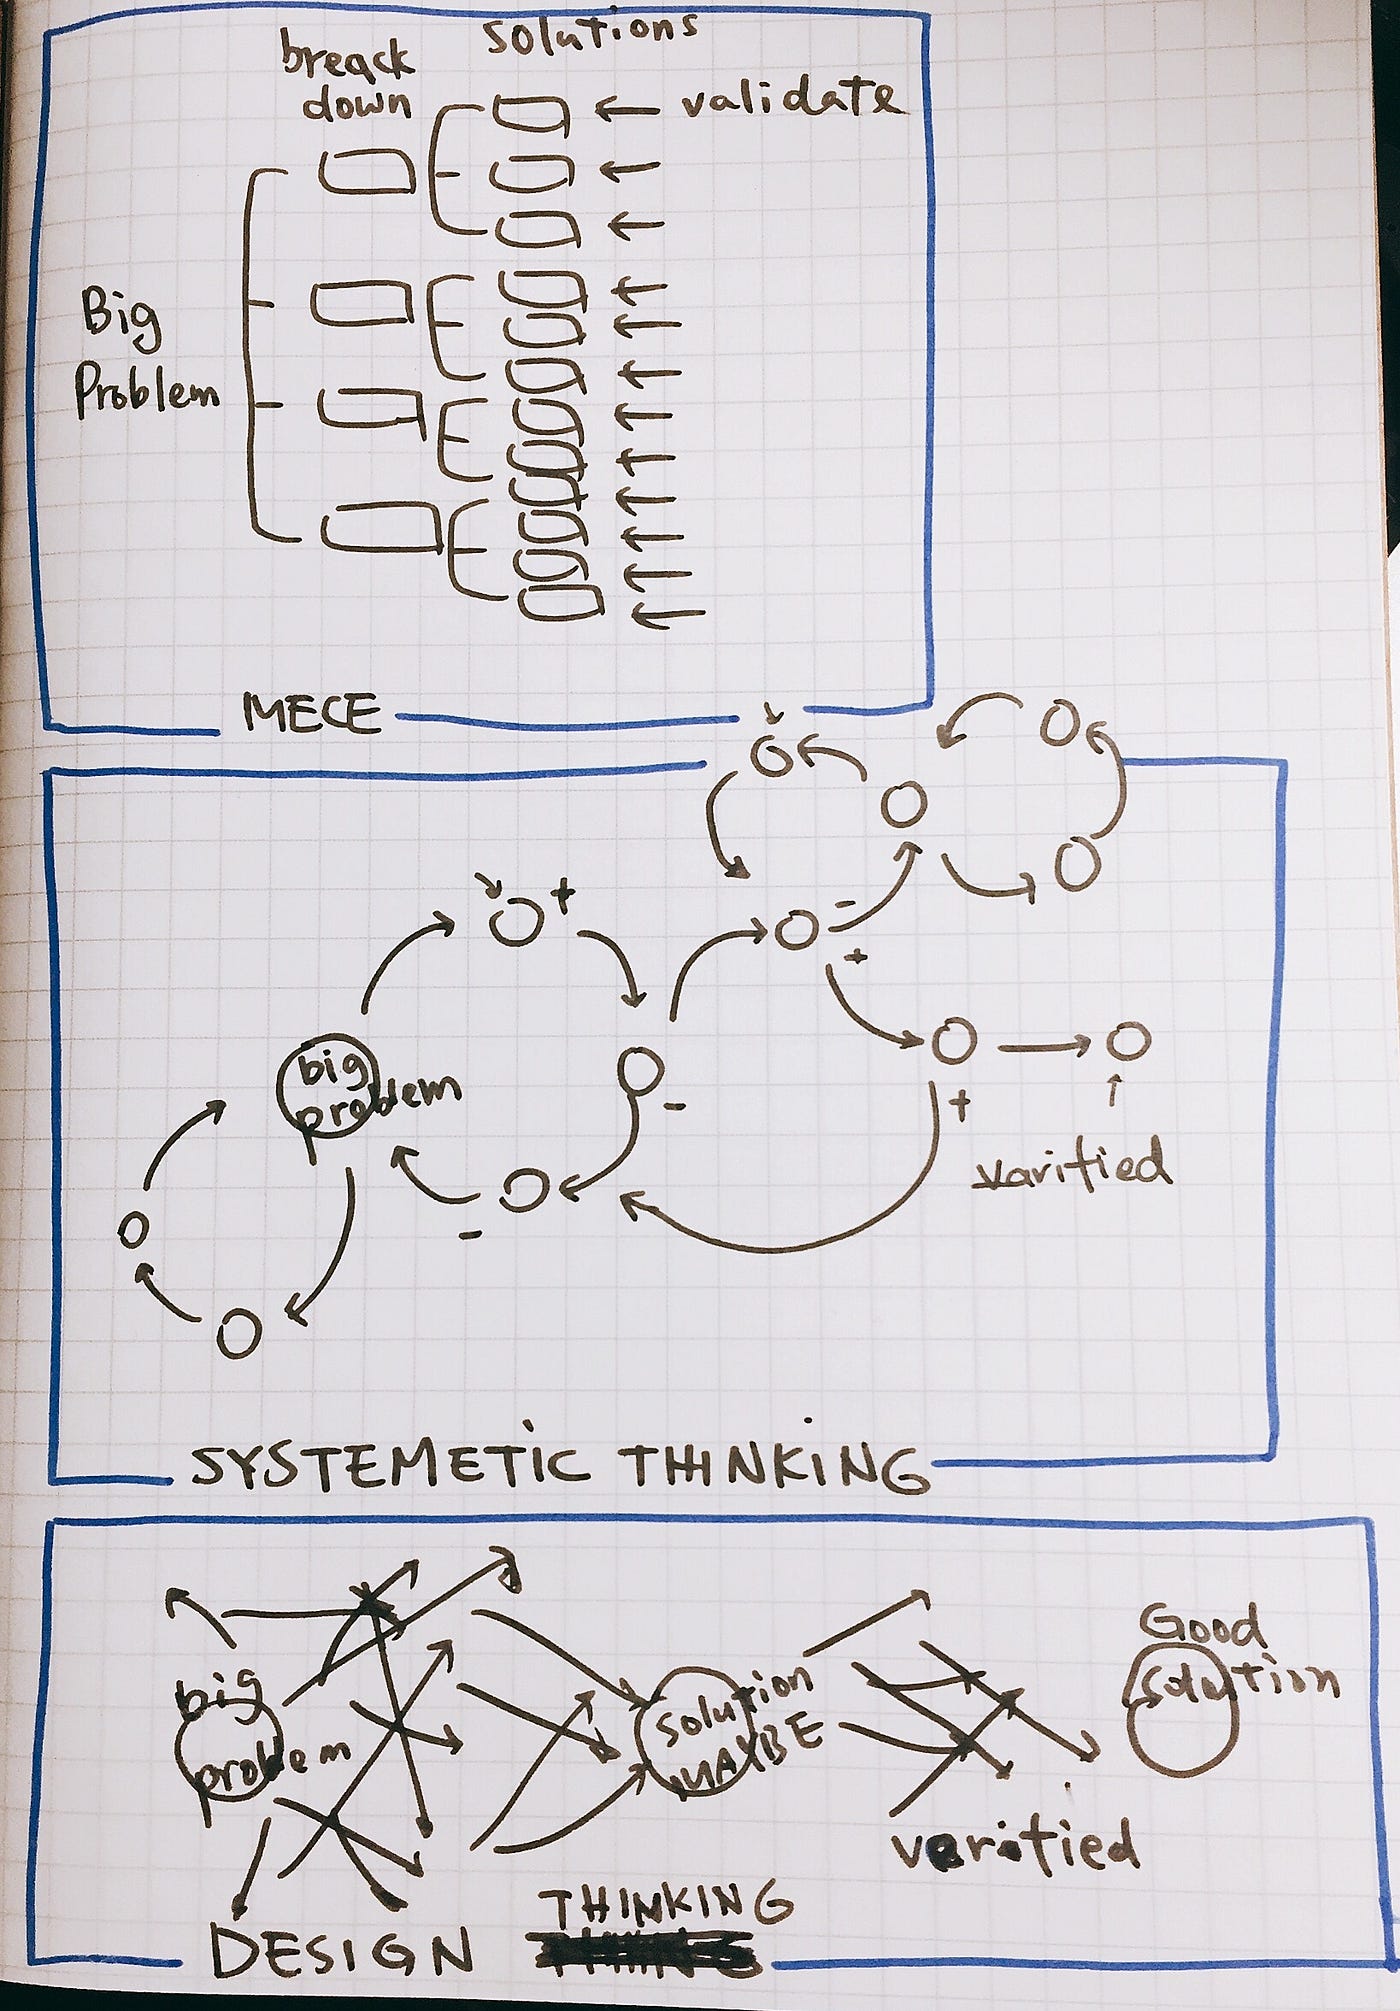 solutions
breack
down
validate
Big
Problem
MECE
+
-
+
big
problem
-
+
varified
-
SYSTEMETIC THINKING
Good
solution
big
problem
solution
MAYBE
verified
THINKING
DESIGN